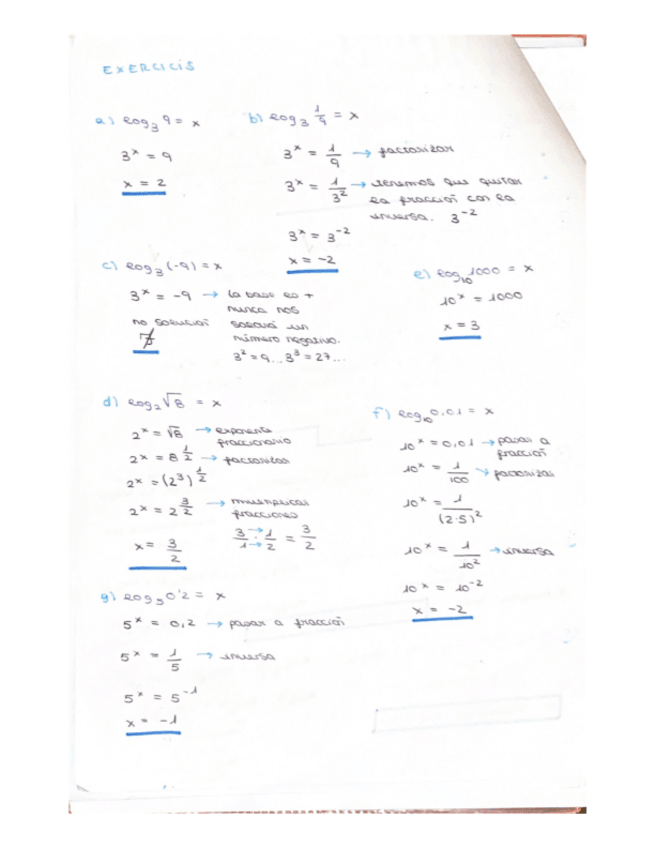 EXERCICIS
a) log₃ 9 = x
3ˣ = 9
x = 2
b) log₃ 1/9 = x
3ˣ = 1/9 → factorizar
3ˣ = 1/3² → tenemos que quitar
la fracción con la
inversa. 3⁻²
3ˣ = 3⁻²
x = -2
c) log₃ (-9) = x
3ˣ = -9 → la base es +
nunca nos
no solución sacará un
∄ número negativo.
3² = 9... 3³ = 27...
e) log₁₀ 1000 = x
10ˣ = 1000
x = 3
d) log₂ √8 = x
2ˣ = √8 → exponente
fraccionario
2ˣ = 8^(1/2) → factorizar
2ˣ = (2³)^(1/2)
2ˣ = 2^(3/2) → multiplicar
fracciones
3/1 · 1/2 = 3/2
x = 3/2
f) log₁₀ 0,01 = x
10ˣ = 0,01 → pasar a
fracción
10ˣ = 1/100 → factorizar
10ˣ = 1/(2·5)²
10ˣ = 1/10² → inversa
10ˣ = 10⁻²
x = -2
g) log₅ 0'2 = x
5ˣ = 0,2 → pasar a fracción
5ˣ = 1/5 → inversa
5ˣ = 5⁻¹
x = -1